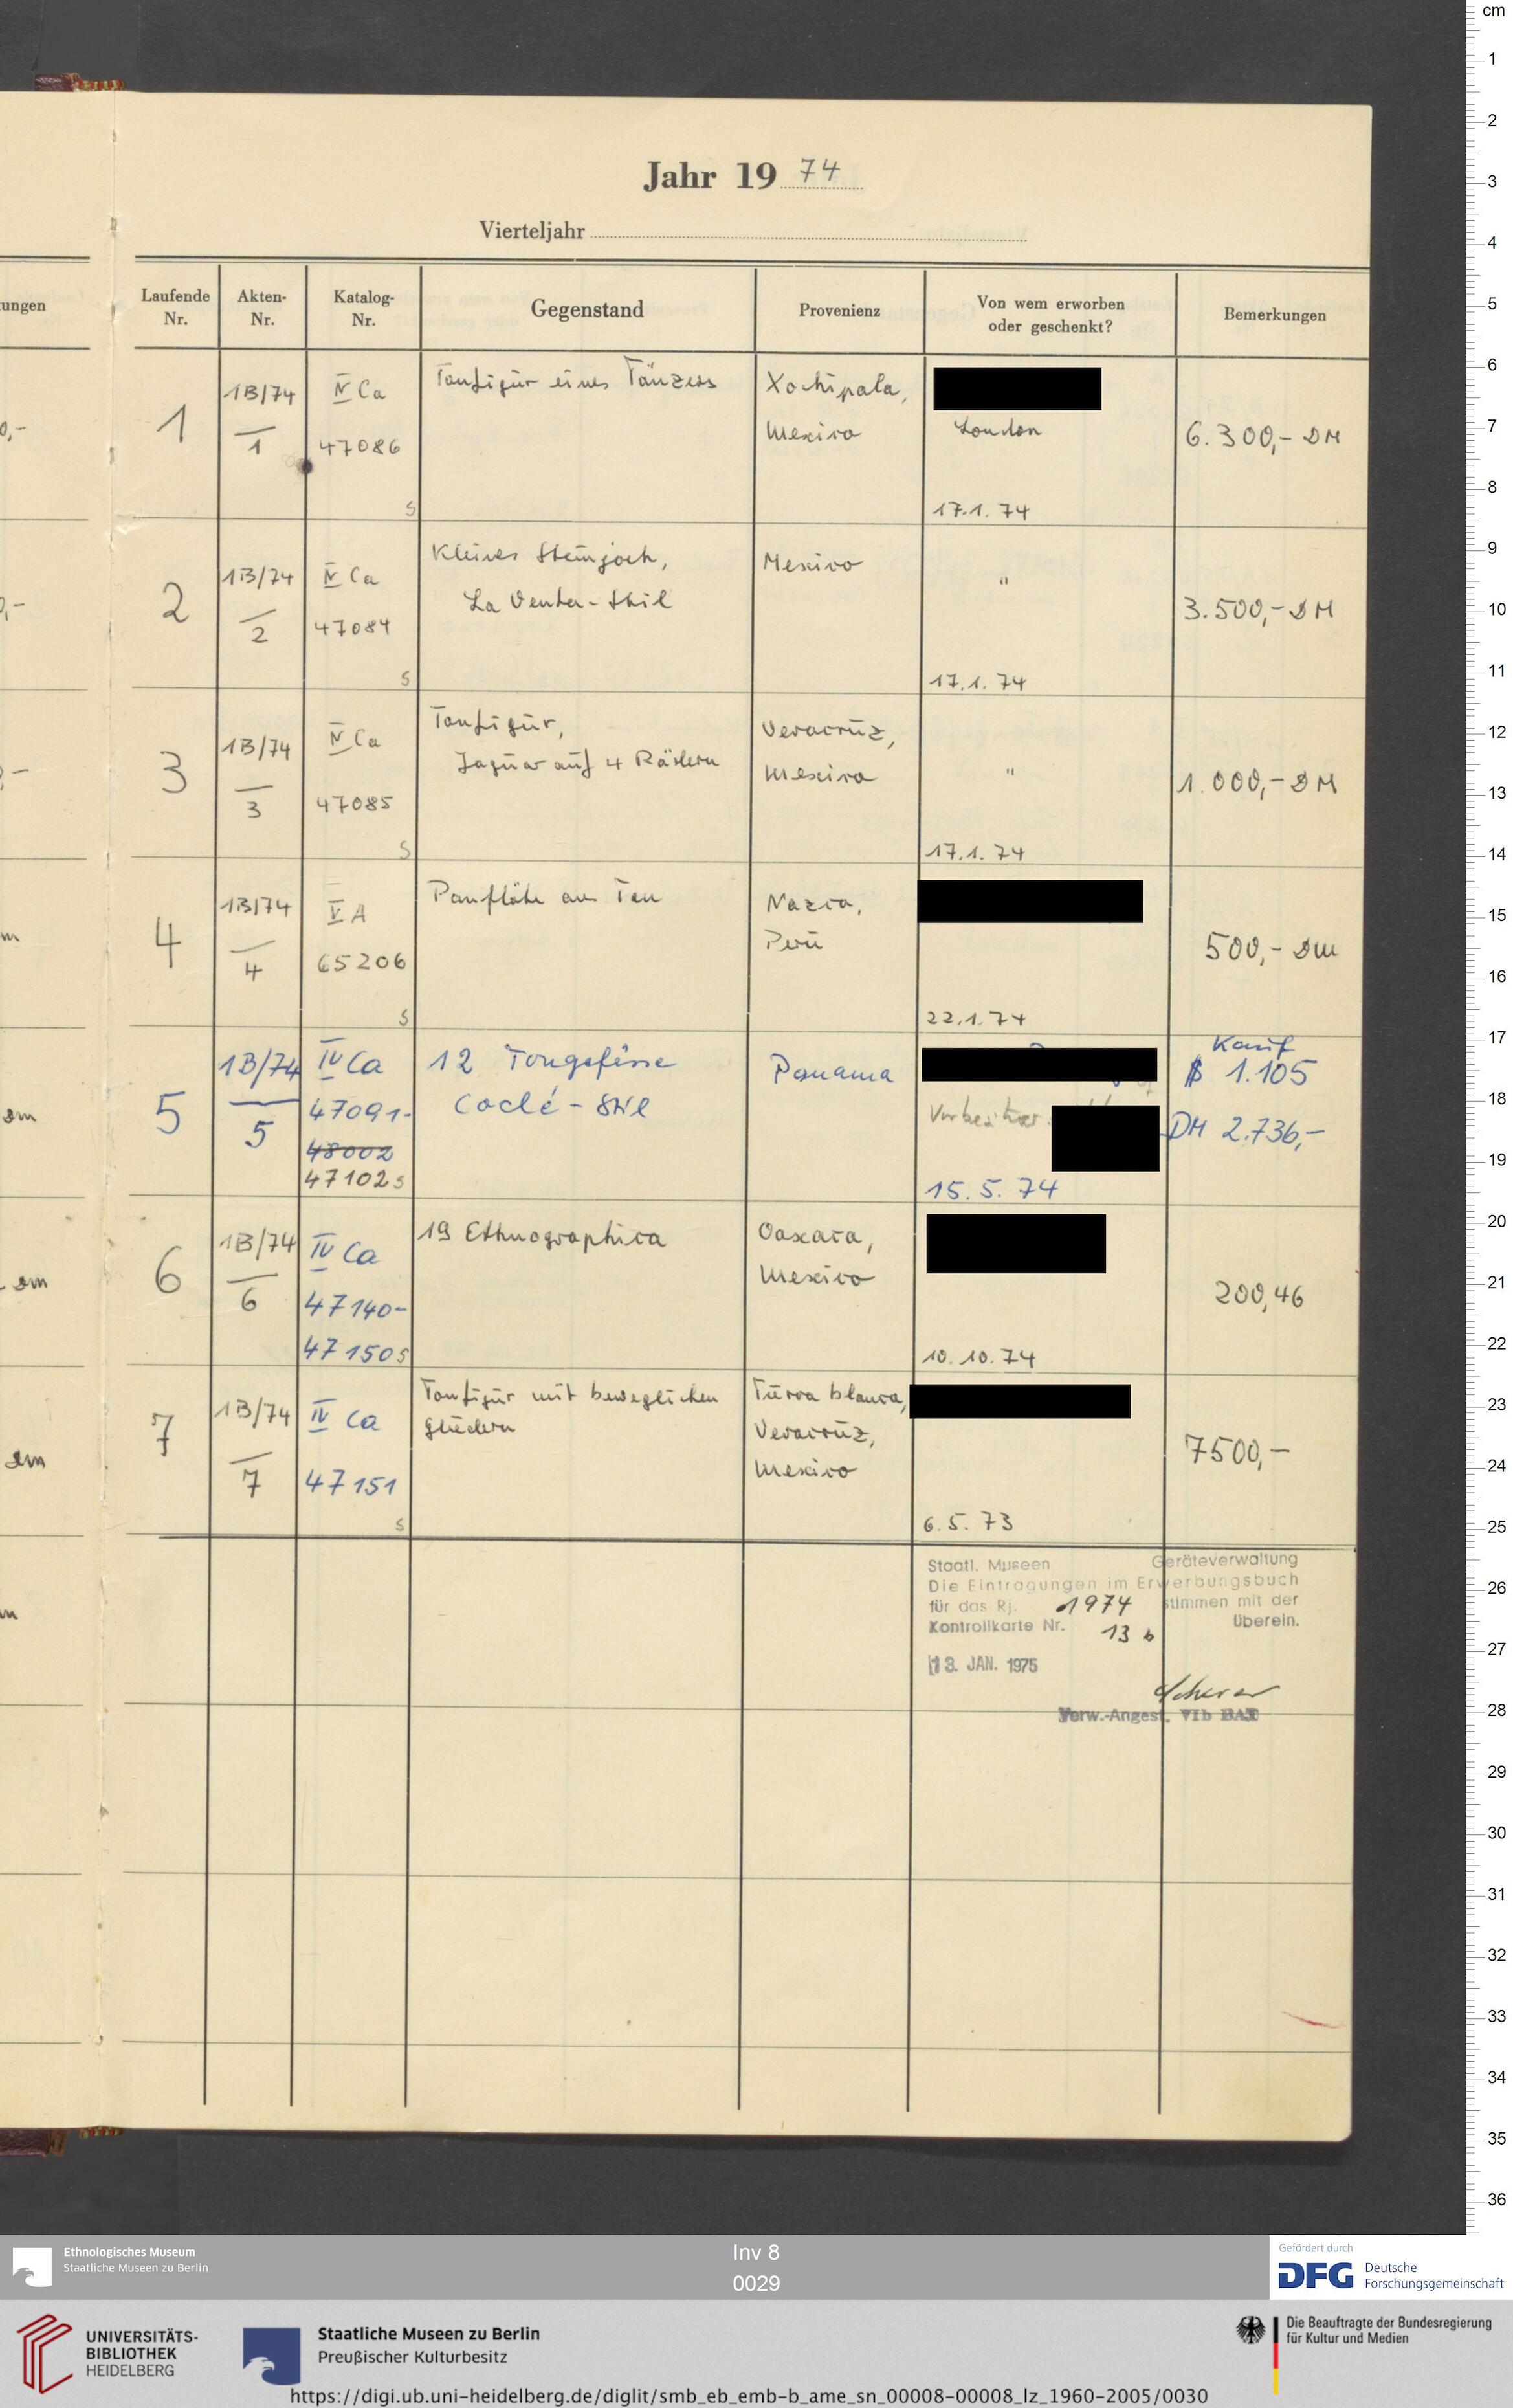 Jahr 19 74
Vierteljahr
ungen
Laufende Nr.
Akten-Nr.
Katalog-Nr.
Gegenstand
Provenienz
Von wem erworben oder geschenkt?
Bemerkungen
1
1B/74
1
IV Ca
47086
s
Tonfigur eines Tänzers
Xochipala,
Mexico
London
17.1.74
6.300,- DM
2
1B/74
2
IV Ca
47084
s
Kleines Steinjoch,
La Venta-Stil
Mexico
"
17.1.74
3.500,- DM
3
1B/74
3
IV Ca
47085
s
Tonfigur,
Jaguar auf 4 Rädern
Veracruz,
Mexico
"
17.1.74
1.000,- DM
4
1B/74
4
V A
65206
s
Panflöte aus Ton
Nazca,
Peru
22.1.74
500,- DM
5
1B/74
5
IV Ca
47091-
48002
47102 s
12 Tongefässe
Coclé-Stil
Panama
Vorbesitzer
15.5.74
Kauf
$ 1.105
DM 2.736,-
6
1B/74
6
IV Ca
47140-
47150 s
19 Ethnographica
Oaxaca,
Mexico
10.10.74
200,46
7
1B/74
7
IV Ca
47151
s
Tonfigur mit beweglichen
Gliedern
Tierra blanca,
Veracruz,
Mexico
6.5.73
7500,-
Staatl. Museen Geräteverwaltung
Die Eintragungen im Erwerbungsbuch
für das Rj. 1974 stimmen mit der
Kontrollkarte Nr. 13 b überein.
13. JAN. 1975
Scherer
Verw.-Angest. VIb BAT
cm
1
2
3
4
5
6
7
8
9
10
11
12
13
14
15
16
17
18
19
20
21
22
23
24
25
26
27
28
29
30
31
32
33
34
35
36
Ethnologisches Museum
Staatliche Museen zu Berlin
Inv 8
0029
Gefördert durch
DFG Deutsche
Forschungsgemeinschaft
UNIVERSITÄTS-
BIBLIOTHEK
HEIDELBERG
Staatliche Museen zu Berlin
Preußischer Kulturbesitz
Die Beauftragte der Bundesregierung
für Kultur und Medien
https://digi.ub.uni-heidelberg.de/diglit/smb_eb_emb-b_ame_sn_00008-00008_lz_1960-2005/0030